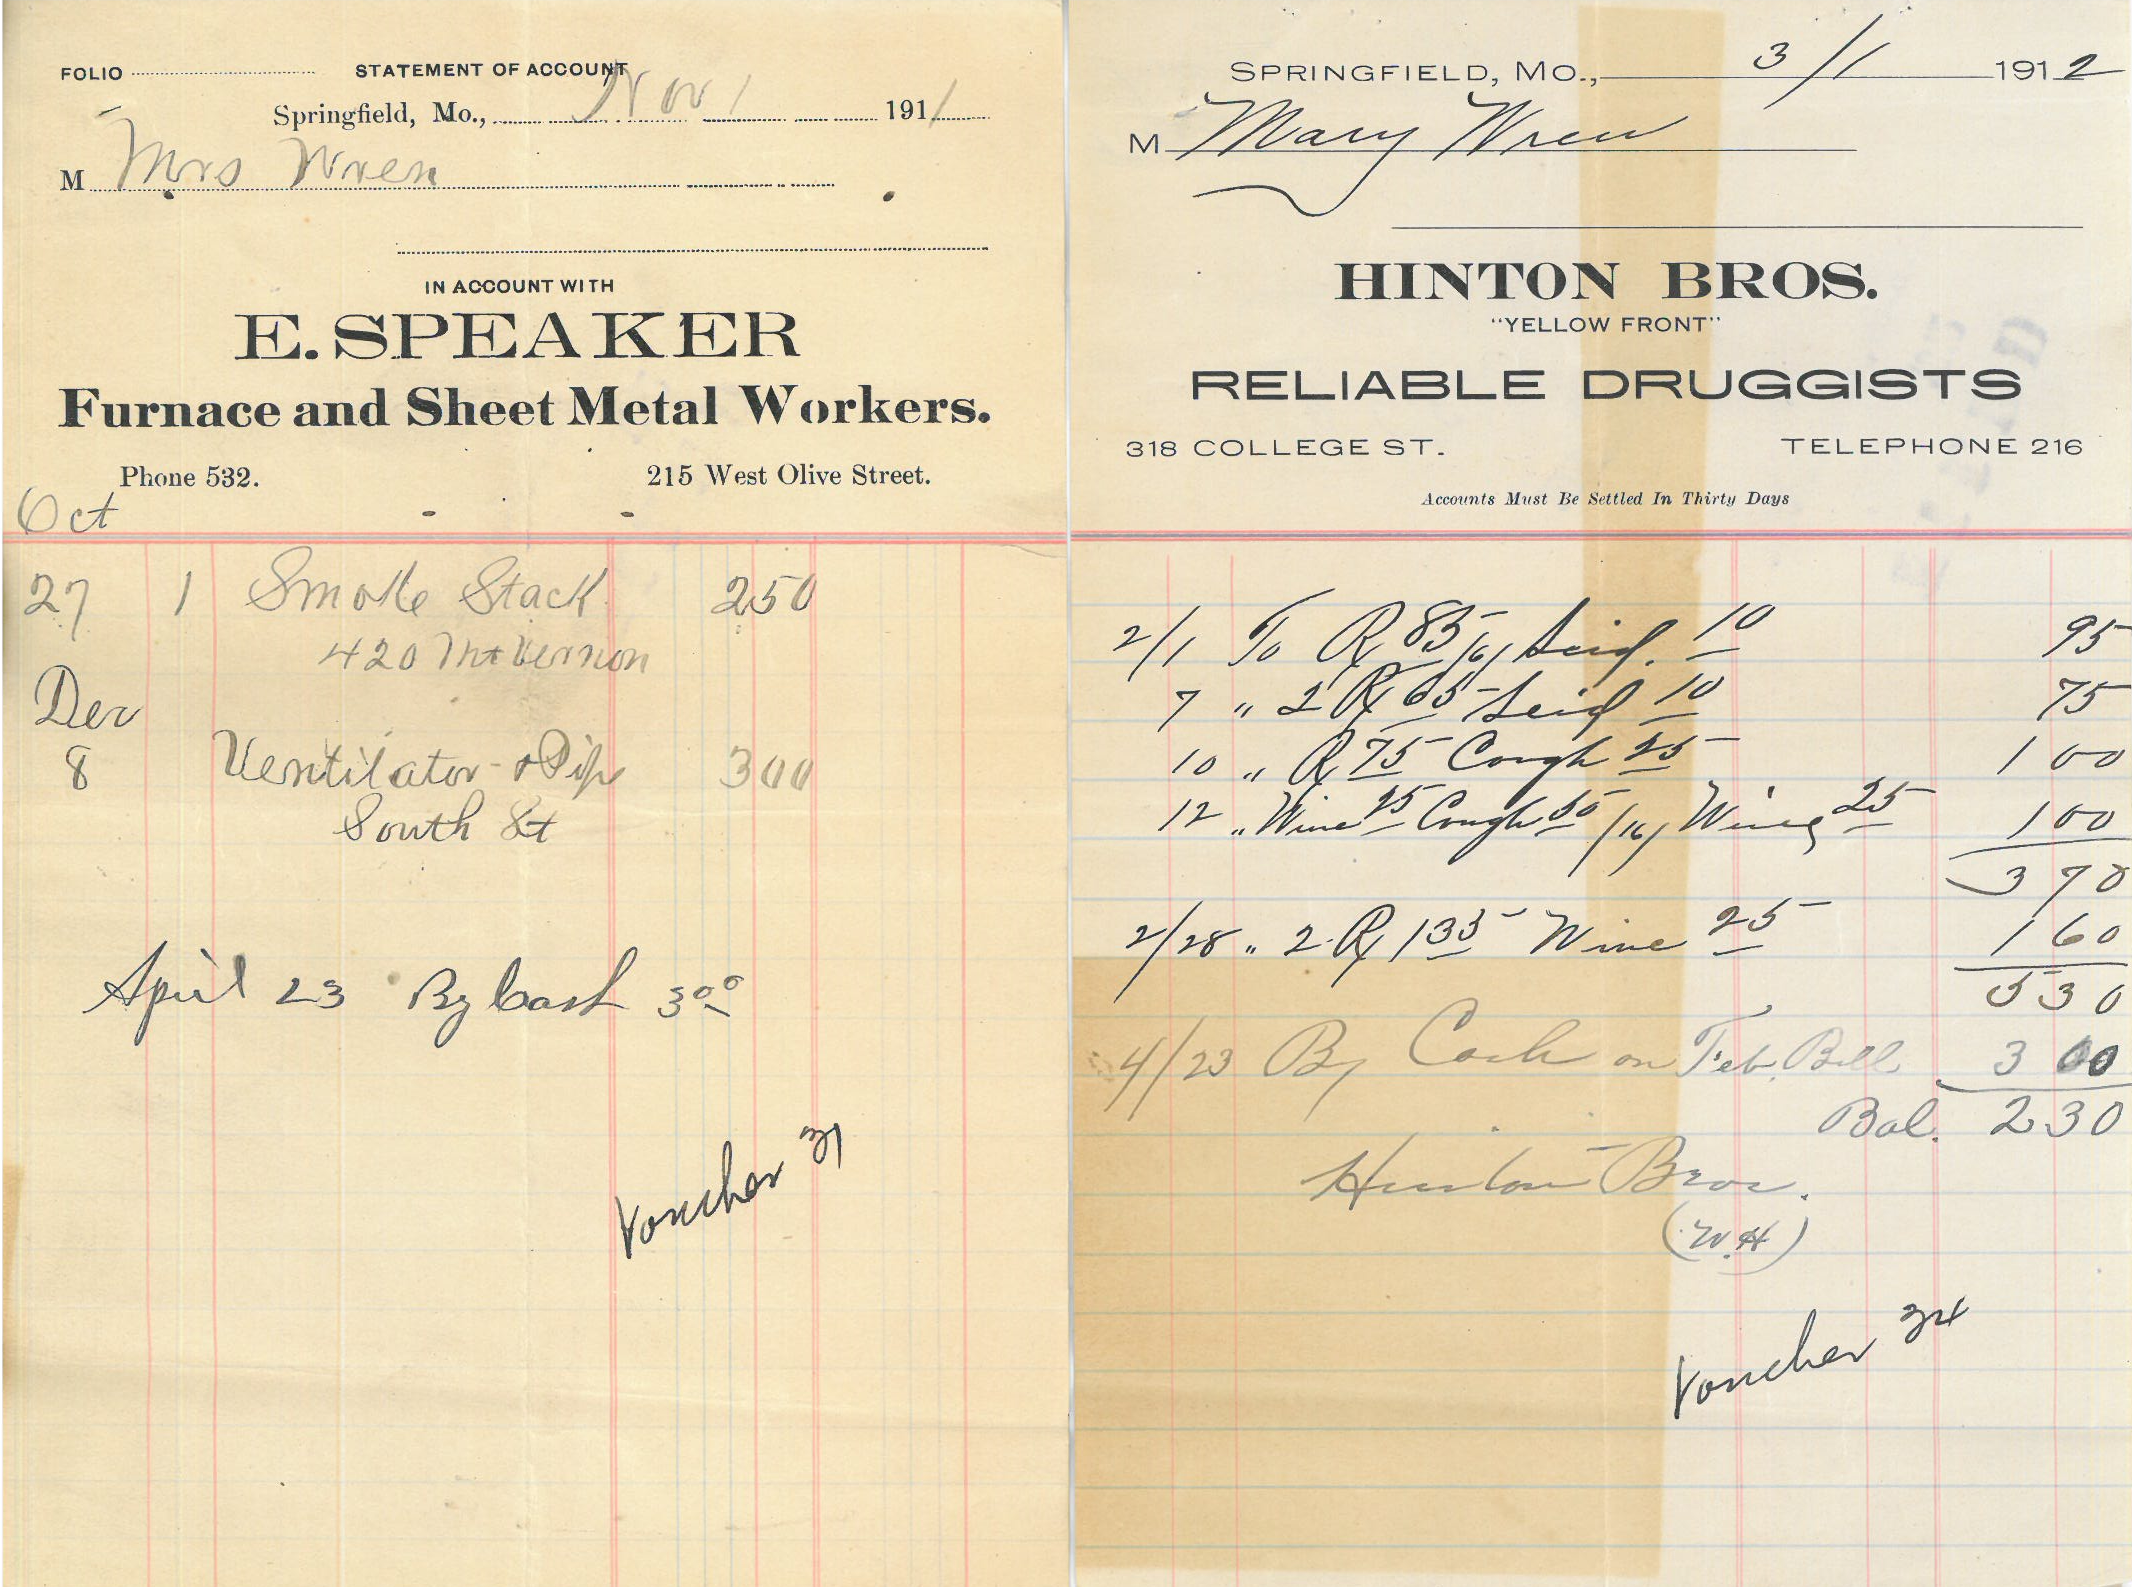 FOLIO STATEMENT OF ACCOUNT
Springfield, Mo., Nov 1 1911
M Mrs Wren
IN ACCOUNT WITH
E. SPEAKER
Furnace and Sheet Metal Workers.
Phone 532. 215 West Olive Street.
Oct
27 1 Smoke Stack 250
420 Mt Vernon
Dec
8 Ventilator & Pipe 300
South St
April 23 By Cash 3 00
Voucher 31
SPRINGFIELD, MO., 3/1 1912
M Mary Wren
HINTON BROS.
"YELLOW FRONT"
RELIABLE DRUGGISTS
318 COLLEGE ST. TELEPHONE 216
Accounts Must Be Settled In Thirty Days
2/1 To Rx 85 /6/ 10 95
7 " 2 Rx 65 10 75
10 " Rx 75 Cough 25 1 00
12 " Wine 25 Cough 50 /16/ Wine 25 1 00
3 70
2/28 " 2 Rx 135 Wine 25 1 60
5 30
4/23 By Cash on Feb. Bill 3 00
Bal. 2 30
Hinton Bros.
(W.H)
Voucher 34